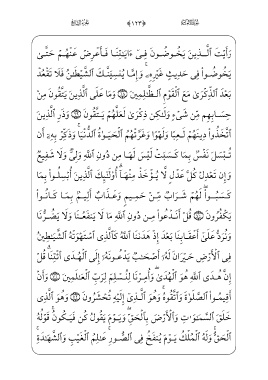 رَأَيْتَ ٱلَّذِينَ يَخُوضُونَ فِىٓ ءَايَـٰتِنَا فَأَعْرِضْ عَنْهُمْ حَتَّىٰ
يَخُوضُوا۟ فِى حَدِيثٍ غَيْرِهِۦ ۚ وَإِمَّا يُنسِيَنَّكَ ٱلشَّيْطَـٰنُ فَلَا تَقْعُدْ
بَعْدَ ٱلذِّكْرَىٰ مَعَ ٱلْقَوْمِ ٱلظَّـٰلِمِينَ ۝ وَمَا عَلَى ٱلَّذِينَ يَتَّقُونَ مِنْ
حِسَابِهِم مِّن شَىْءٍ وَلَـٰكِن ذِكْرَىٰ لَعَلَّهُمْ يَتَّقُونَ ۝ وَذَرِ ٱلَّذِينَ
ٱتَّخَذُوا۟ دِينَهُمْ لَعِبًا وَلَهْوًا وَغَرَّتْهُمُ ٱلْحَيَوٰةُ ٱلدُّنْيَا ۚ وَذَكِّرْ بِهِۦٓ أَن
تُبْسَلَ نَفْسٌۢ بِمَا كَسَبَتْ لَيْسَ لَهَا مِن دُونِ ٱللَّهِ وَلِىٌّ وَلَا شَفِيعٌ
وَإِن تَعْدِلْ كُلَّ عَدْلٍ لَّا يُؤْخَذْ مِنْهَآ ۗ أُو۟لَـٰٓئِكَ ٱلَّذِينَ أُبْسِلُوا۟ بِمَا
كَسَبُوا۟ ۖ لَهُمْ شَرَابٌ مِّنْ حَمِيمٍ وَعَذَابٌ أَلِيمٌۢ بِمَا كَانُوا۟
يَكْفُرُونَ ۝ قُلْ أَنَدْعُوا۟ مِن دُونِ ٱللَّهِ مَا لَا يَنفَعُنَا وَلَا يَضُرُّنَا
وَنُرَدُّ عَلَىٰٓ أَعْقَابِنَا بَعْدَ إِذْ هَدَىٰنَا ٱللَّهُ كَٱلَّذِى ٱسْتَهْوَتْهُ ٱلشَّيَـٰطِينُ
فِى ٱلْأَرْضِ حَيْرَانَ لَهُۥٓ أَصْحَـٰبٌ يَدْعُونَهُۥٓ إِلَى ٱلْهُدَى ٱئْتِنَا ۗ قُلْ
إِنَّ هُدَى ٱللَّهِ هُوَ ٱلْهُدَىٰ ۖ وَأُمِرْنَا لِنُسْلِمَ لِرَبِّ ٱلْعَـٰلَمِينَ ۝ وَأَنْ
أَقِيمُوا۟ ٱلصَّلَوٰةَ وَٱتَّقُوهُ ۚ وَهُوَ ٱلَّذِىٓ إِلَيْهِ تُحْشَرُونَ ۝ وَهُوَ ٱلَّذِى
خَلَقَ ٱلسَّمَـٰوَٰتِ وَٱلْأَرْضَ بِٱلْحَقِّ ۖ وَيَوْمَ يَقُولُ كُن فَيَكُونُ ۚ قَوْلُهُ
ٱلْحَقُّ ۚ وَلَهُ ٱلْمُلْكُ يَوْمَ يُنفَخُ فِى ٱلصُّورِ ۚ عَـٰلِمُ ٱلْغَيْبِ وَٱلشَّهَـٰدَةِ ۚ